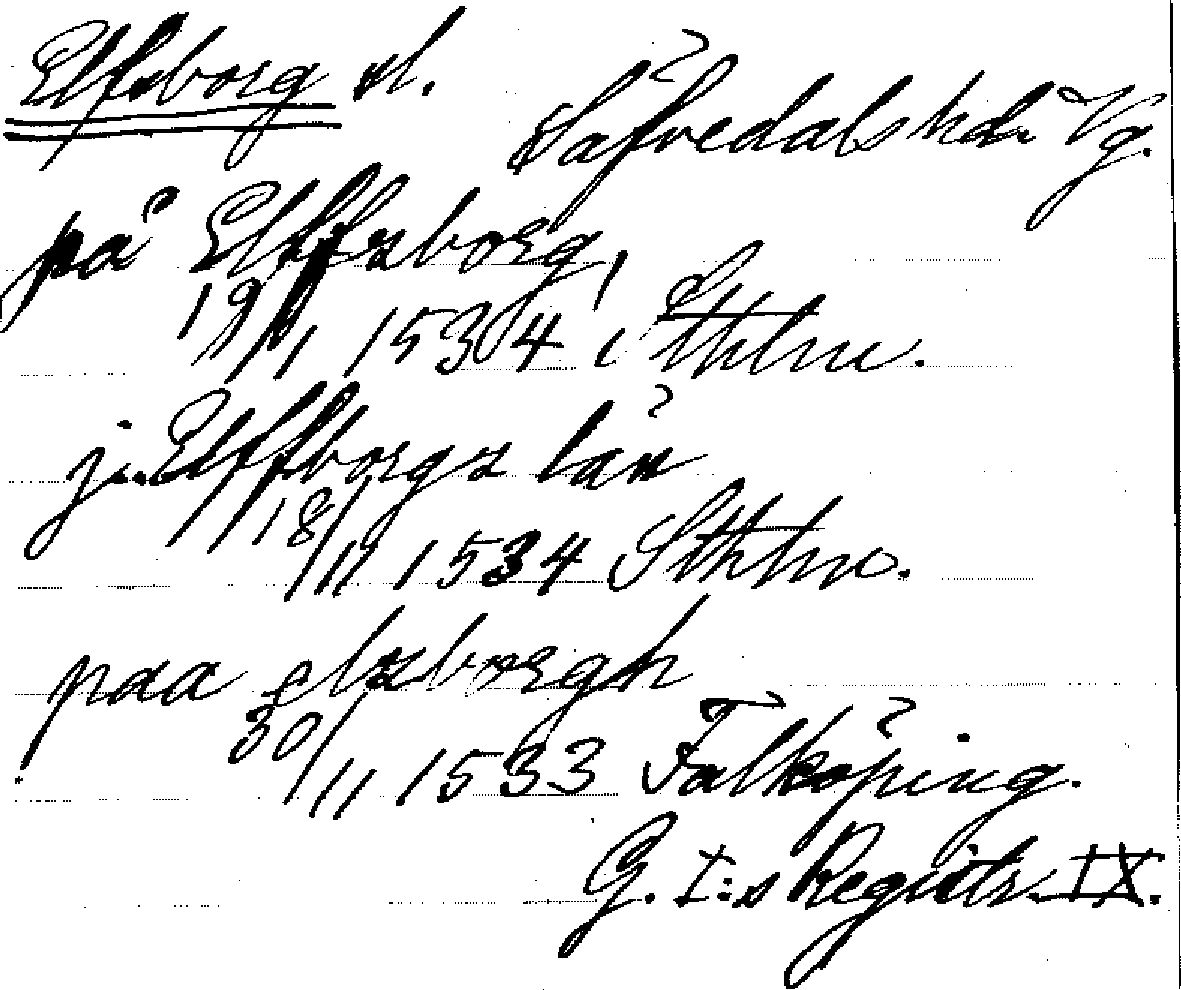 Elfsborg sl.
Säfvedals hd. Vg.
på Elffzborg,
19/1 1534 i Sthlm.
j. Elffborgz län
18/11 1534 Sthlm.
paa elzborgh
30/11 1533 Falköping.
G. I:s Registr. IX.